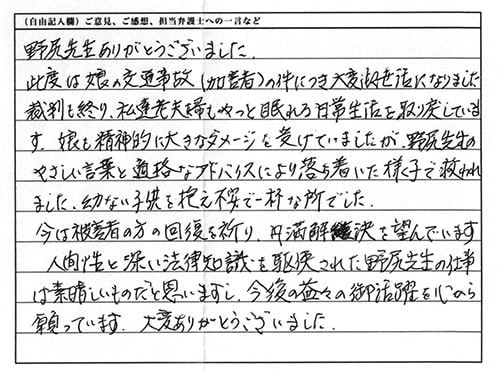 （自由記入欄）ご意見、ご感想、担当弁護士への一言など
野尻先生ありがとうございました。
此度は娘の交通事故（加害者）の件につき大変御世話になりました
裁判も終り、私達老夫婦もやっと眠れる日常生活を取り戻していま
す。娘も精神的に大きなダメージを受けていましたが、野尻先生の
やさしい言葉と適格なアドバイスにより落ち着いた様子で救われ
ました。幼ない子供を抱え不安で一杯な所でした。
今は被害者の方の回復を祈り、円満解決を望んでいます
人間性と深い法律知識を駆使された野尻先生の仕事
は素晴しいものだと思いますし、今後の益々の御活躍を心から
願っています。大変ありがとうございました。